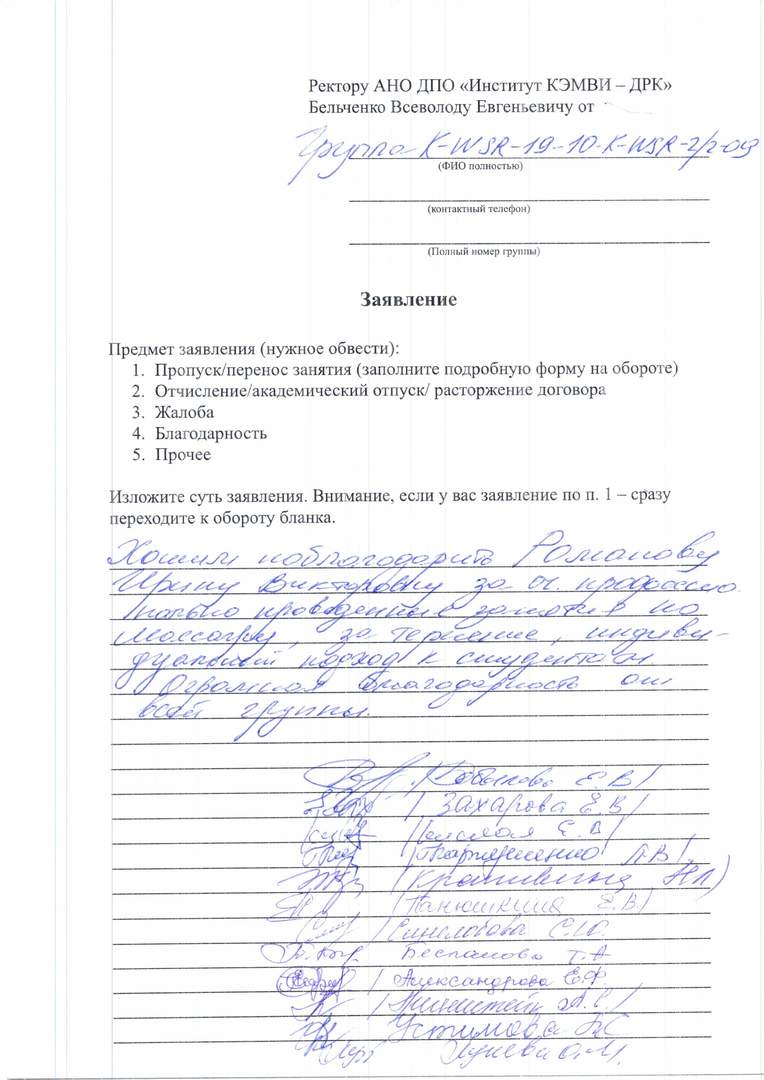 Ректору АНО ДПО «Институт КЭМВИ – ДРК»
Бельченко Всеволоду Евгеньевичу от
Группа K-WSR-19-10-K-WSR-2/2-09
(ФИО полностью)
(контактный телефон)
(Полный номер группы)
Заявление
Предмет заявления (нужное обвести):
1. Пропуск/перенос занятия (заполните подробную форму на обороте)
2. Отчисление/академический отпуск/ расторжение договора
3. Жалоба
4. Благодарность
5. Прочее
Изложите суть заявления. Внимание, если у вас заявление по п. 1 – сразу
переходите к обороту бланка.
Хотим поблагодарить Романову
Ирину Викторовну за оч. профессио-
нально проведенные занятия по
массажу, за терпение, индиви-
дуальный подход к студентам
Огромная благодарность от
всей группы.
Е.В/
/ Захарова Е.В/
Е.В/
/Пархоменко Л.В/
/Крапивина Н.Л)
/Панюшкина Е.В/
/Синелобова С.Ю.
Беспалова Т.А
/ Александрова Е.Ф
А.С/
Устимова В.С
О.М.